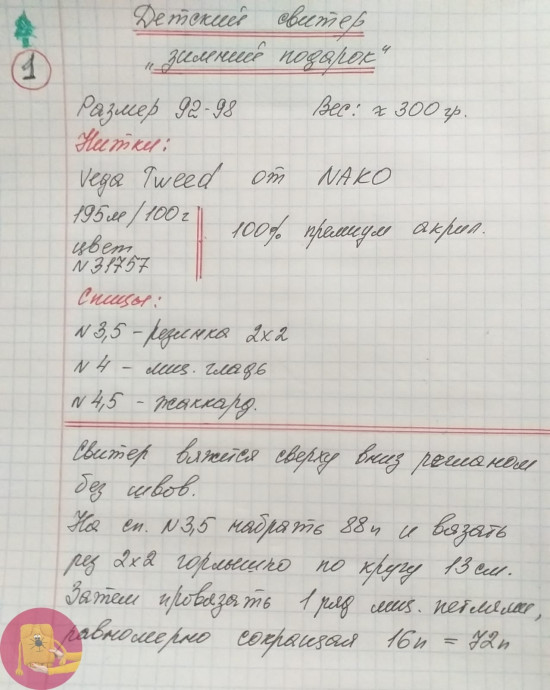 Детский свитер
"зимний подарок"
1
Размер 92-98 Вес: ≈ 300 гр.
Нитки:
Vega Tweed от NAKO
195м/100г
100% премиум акрил.
цвет
N31757
Спицы:
N3,5 - резинка 2х2
N4 - лиц. гладь
N4,5 - жаккард.
Свитер вяжется сверху вниз регланом
без швов.
На сп. N3,5 набрать 88п и вязать
рез 2х2 горлышко по кругу 13 см.
Затем провязать 1 ряд лиц. петлями,
равномерно сокращая 16п = 72п